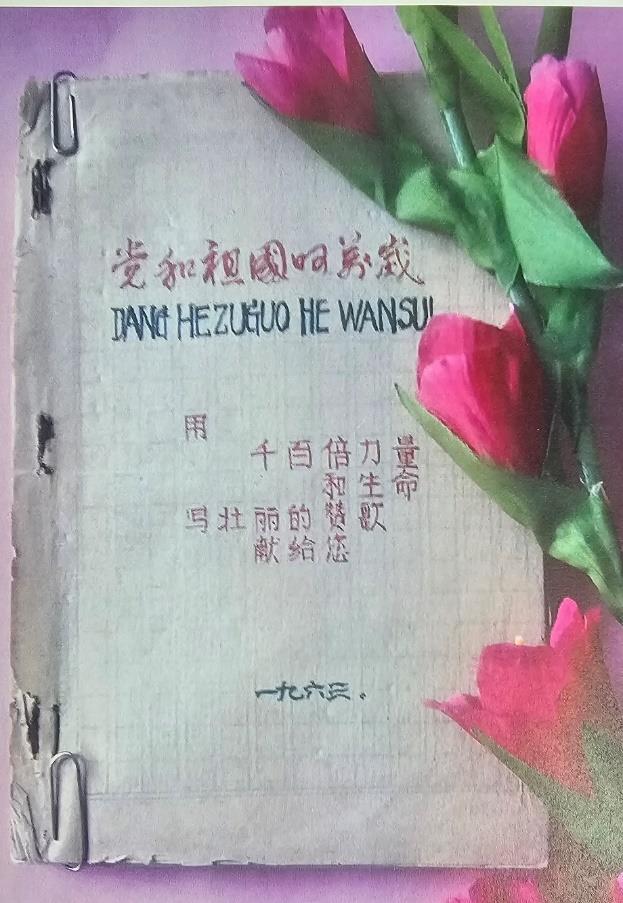 党和祖國呵萬歲
DANG HE ZUGUO HE WANSUI
用
千百倍力量
和生命
写壮丽的赞歌
献给您
一九六三.